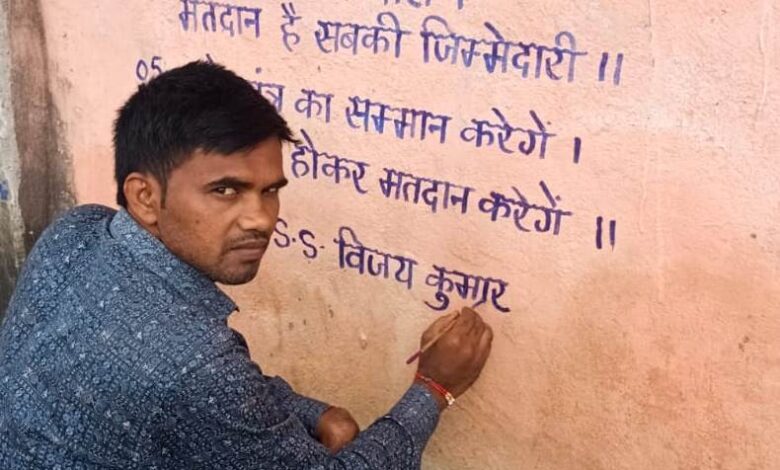 मतदान है सबकी जिम्मेदारी ॥
05. का सम्मान करेगें ।
होकर मतदान करेगें ॥
S.S. विजय कुमार